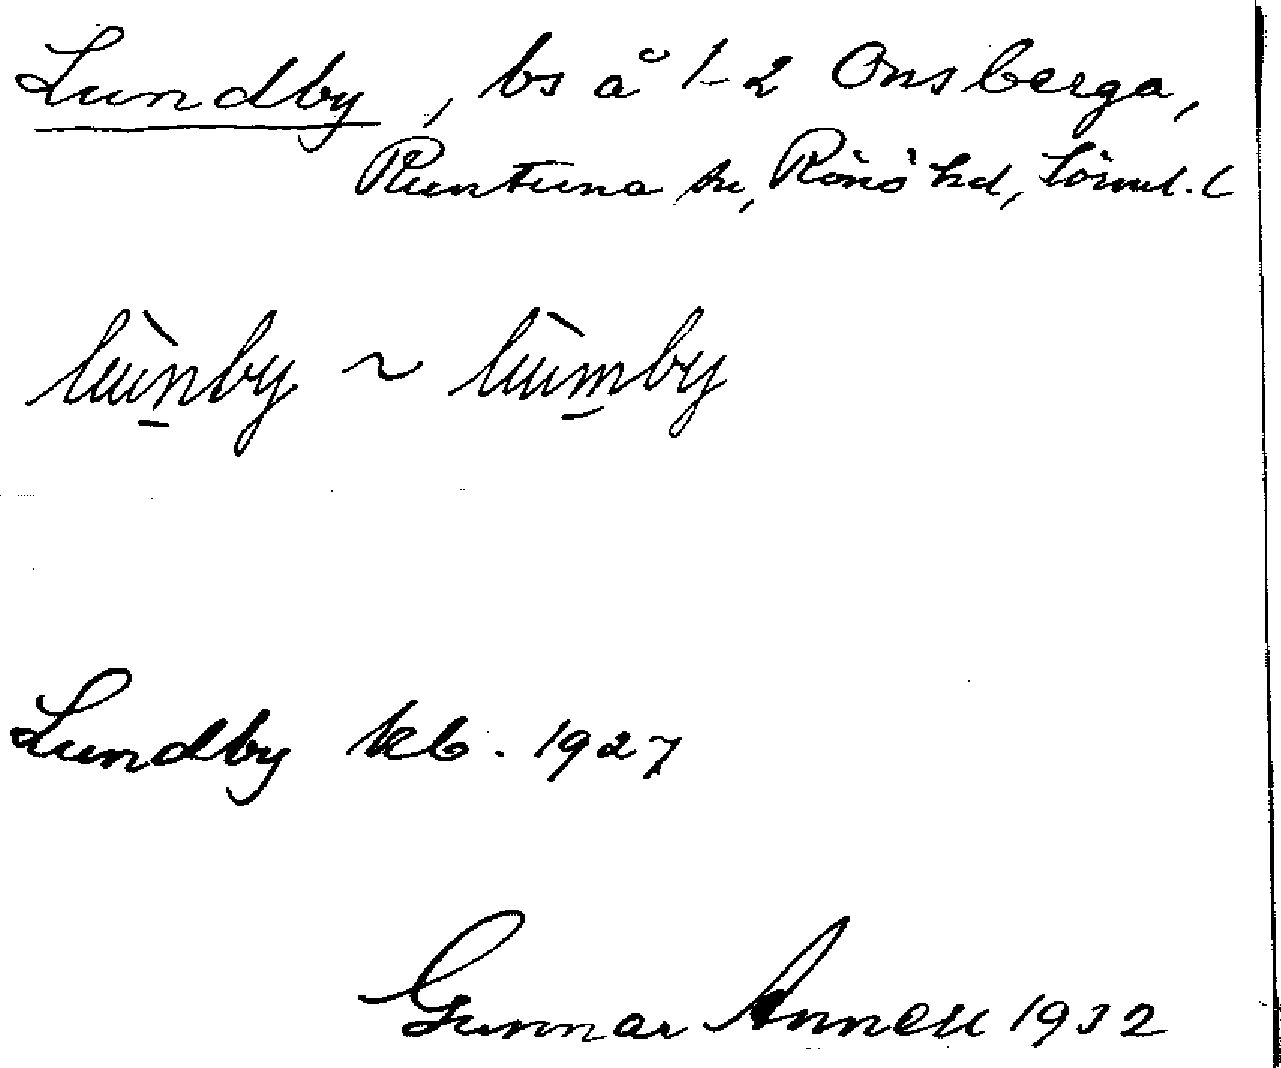 Lundby, bs å 1-2 Onsberga,
Runtuna sn, Rönö hd, Sörml. l
lùn̲by ~ lùm̲by
Lundby kb. 1927
Gunnar Annell 1932